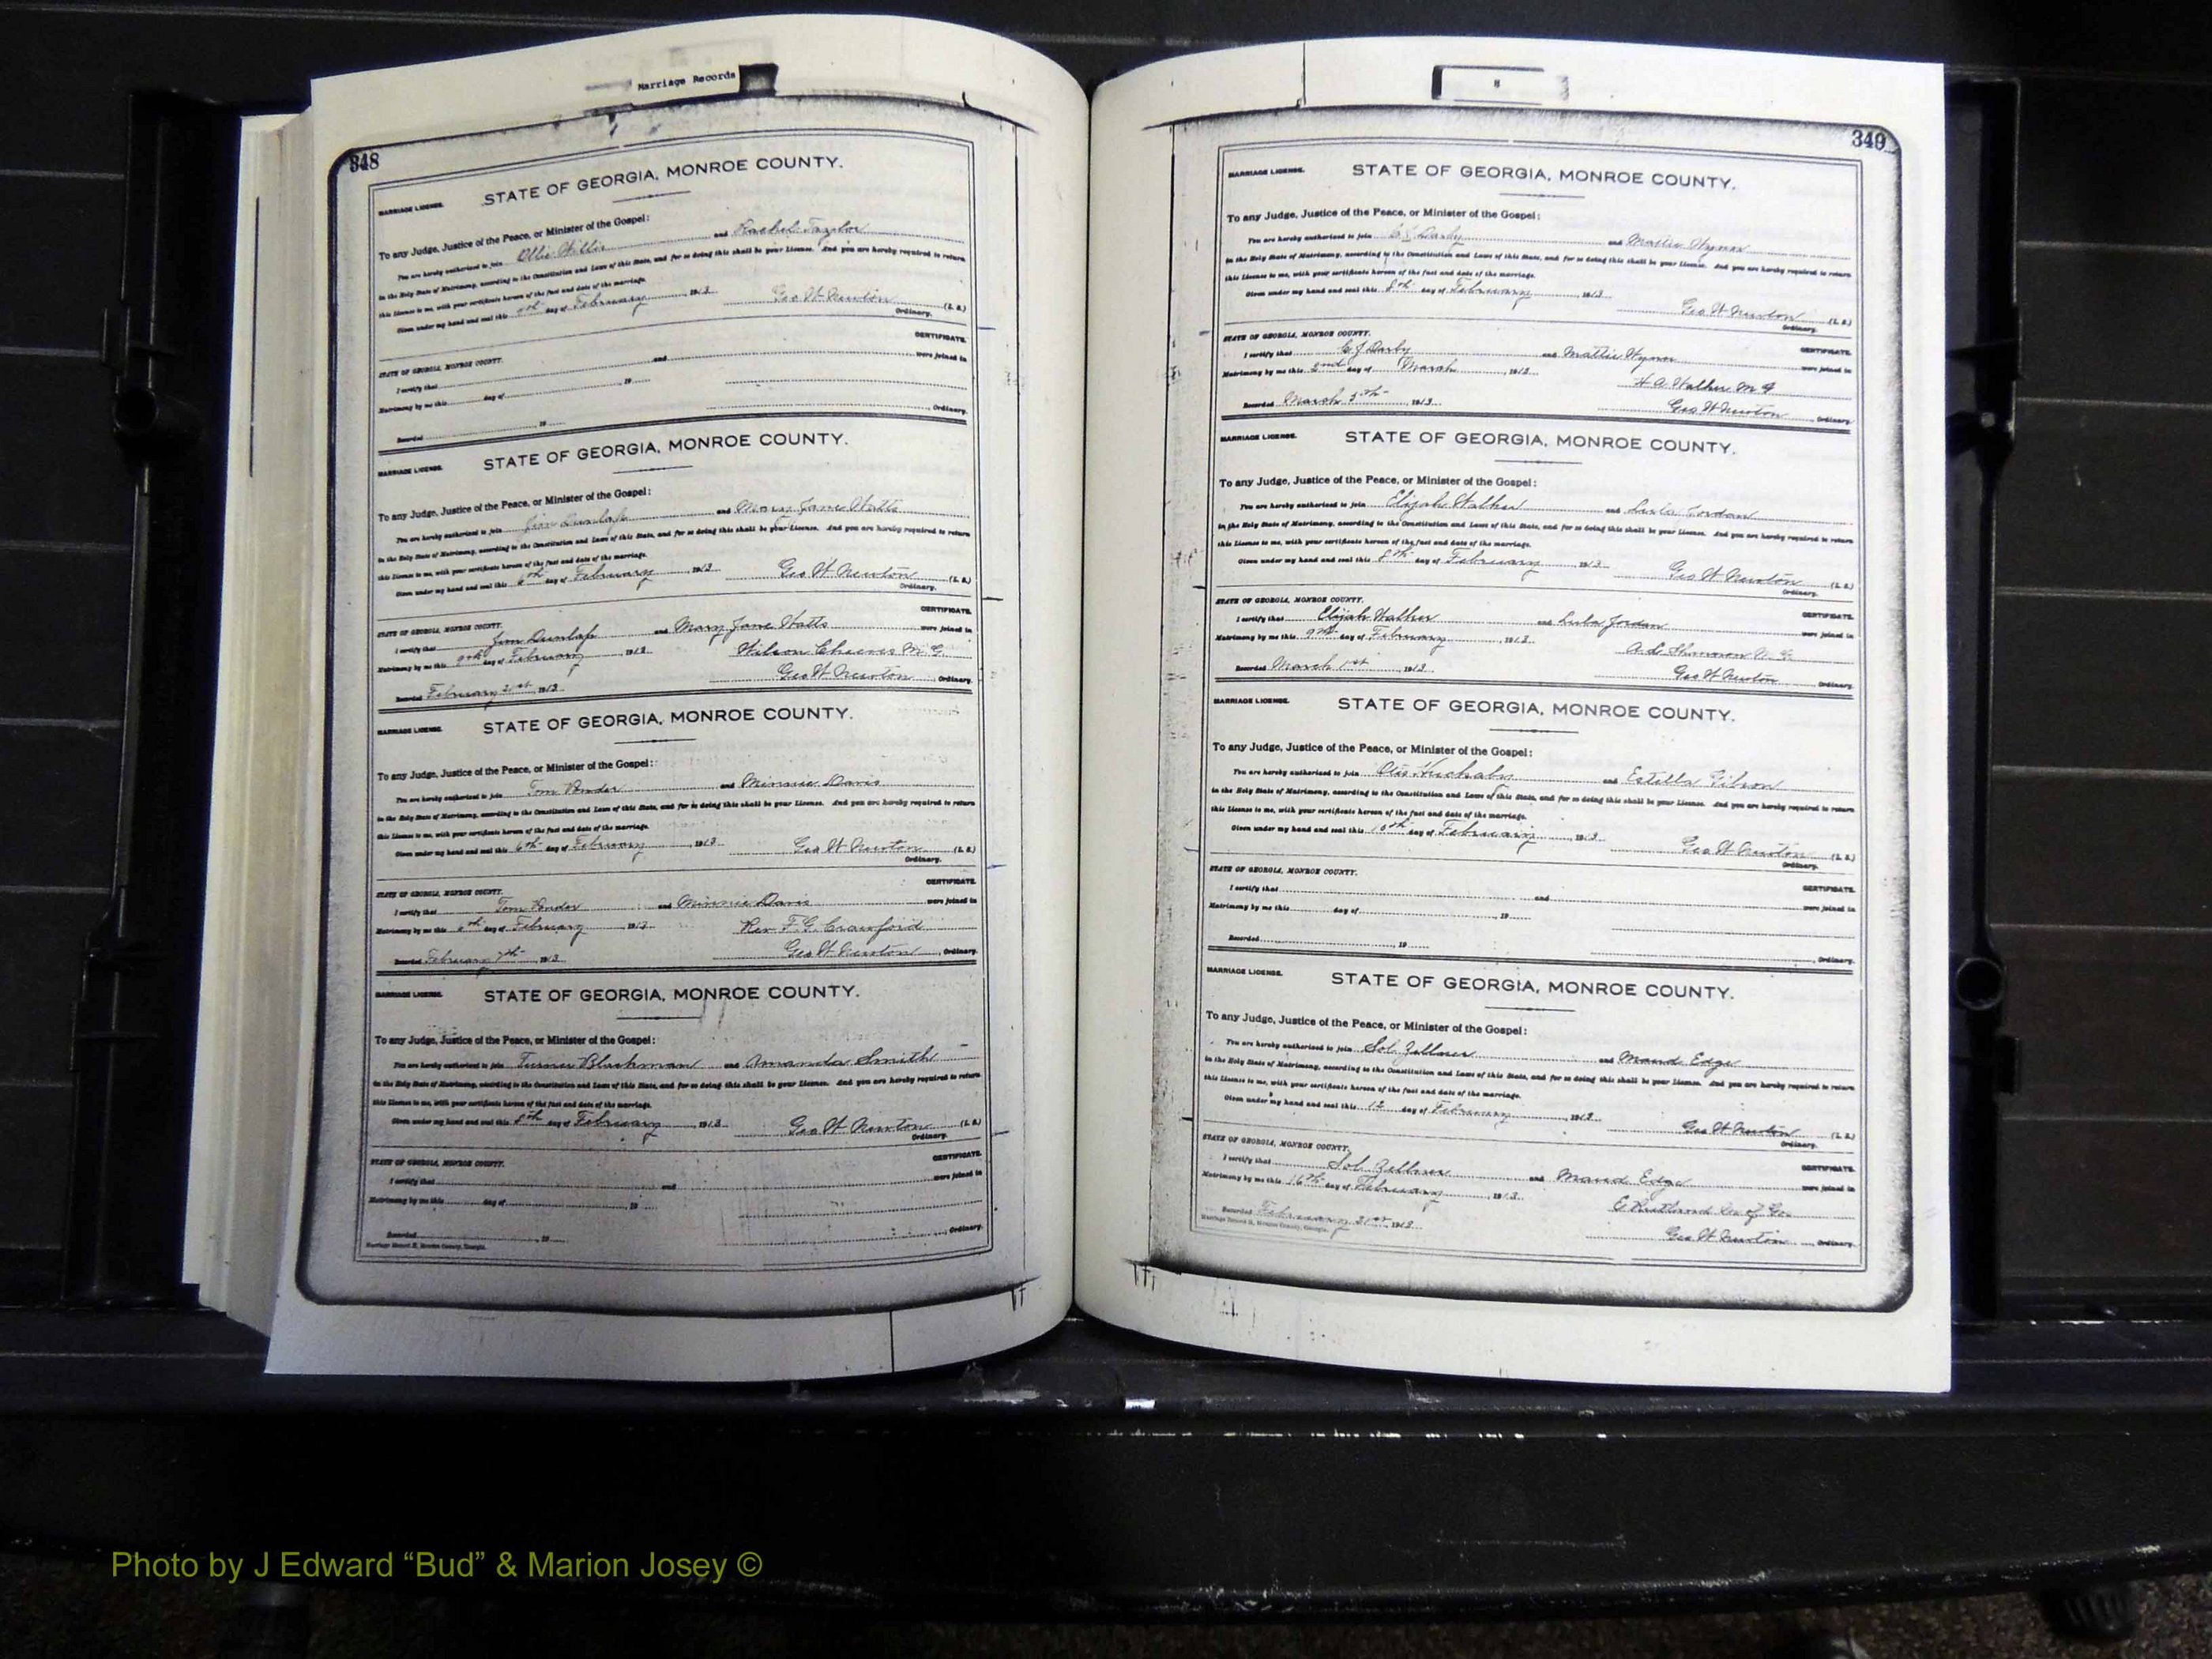 Marriage Records
348
STATE OF GEORGIA, MONROE COUNTY.
MARRIAGE LICENSE.
To any Judge, Justice of the Peace, or Minister of the Gospel:
You are hereby authorized to join Ollie Willis and Rachel Taylor
in the Holy State of Matrimony, according to the Constitution and Laws of this State, and for so doing this shall be your License. And you are hereby required to return
this License to me, with your certificate hereon of the fact and date of the marriage.
Given under my hand and seal this day of February, 1913 Geo W Newton (L. S.)
Ordinary.
STATE OF GEORGIA, MONROE COUNTY. CERTIFICATE.
I certify that and were joined in
Matrimony by me this day of 19
Recorded 19 Ordinary.
STATE OF GEORGIA, MONROE COUNTY.
MARRIAGE LICENSE.
To any Judge, Justice of the Peace, or Minister of the Gospel:
You are hereby authorized to join Jim Dunlap and Mary Jane Watts
in the Holy State of Matrimony, according to the Constitution and Laws of this State, and for so doing this shall be your License. And you are hereby required to return
this License to me, with your certificate hereon of the fact and date of the marriage.
Given under my hand and seal this 6th day of February, 1913 Geo W Newton (L. S.)
Ordinary.
STATE OF GEORGIA, MONROE COUNTY. CERTIFICATE.
I certify that Jim Dunlap and Mary Jane Watts were joined in
Matrimony by me this 9th day of February, 1913 Wilson Cheeves M.G.
Recorded February 21st, 1913 Geo W Newton, Ordinary.
MARRIAGE LICENSE. STATE OF GEORGIA, MONROE COUNTY.
To any Judge, Justice of the Peace, or Minister of the Gospel:
You are hereby authorized to join Tom Ponder and Minnie Davis
in the Holy State of Matrimony, according to the Constitution and Laws of this State, and for so doing this shall be your License. And you are hereby required to return
this License to me, with your certificate hereon of the fact and date of the marriage.
Given under my hand and seal this 6th day of February, 1913 Geo W Newton (L. S.)
Ordinary.
STATE OF GEORGIA, MONROE COUNTY. CERTIFICATE.
I certify that Tom Ponder and Minnie Davis were joined in
Matrimony by me this 6th day of February 1913 Rev. F. G. Crawford
Recorded February 7th, 1913 Geo W Newton, Ordinary.
MARRIAGE LICENSE. STATE OF GEORGIA, MONROE COUNTY.
To any Judge, Justice of the Peace, or Minister of the Gospel:
You are hereby authorized to join Turner Blackman and Amanda Smith
in the Holy State of Matrimony, according to the Constitution and Laws of this State, and for so doing this shall be your License. And you are hereby required to return
this License to me, with your certificate hereon of the fact and date of the marriage.
Given under my hand and seal this 8th day of February, 1913 Geo W Newton (L. S.)
Ordinary.
STATE OF GEORGIA, MONROE COUNTY. CERTIFICATE.
I certify that and were joined in
Matrimony by me this day of 19
Recorded 19 Ordinary.
Marriage Record H, Monroe County, Georgia.
349
MARRIAGE LICENSE. STATE OF GEORGIA, MONROE COUNTY.
To any Judge, Justice of the Peace, or Minister of the Gospel:
You are hereby authorized to join C J Darby and Mattie Wynn
in the Holy State of Matrimony, according to the Constitution and Laws of this State, and for so doing this shall be your License. And you are hereby required to return
this License to me, with your certificate hereon of the fact and date of the marriage.
Given under my hand and seal this 8th day of February, 1913 Geo W Newton (L. S.)
Ordinary.
STATE OF GEORGIA, MONROE COUNTY. CERTIFICATE.
I certify that C J Darby and Mattie Wynn were joined in
Matrimony by me this 2nd day of March, 1913 H A Walker M G
Recorded March 5th, 1913 Geo W Newton, Ordinary.
MARRIAGE LICENSE. STATE OF GEORGIA, MONROE COUNTY.
To any Judge, Justice of the Peace, or Minister of the Gospel:
You are hereby authorized to join Elijah Walker and Lula Jordan
in the Holy State of Matrimony, according to the Constitution and Laws of this State, and for so doing this shall be your License. And you are hereby required to return
this License to me, with your certificate hereon of the fact and date of the marriage.
Given under my hand and seal this 8th day of February, 1913 Geo W Newton (L. S.)
Ordinary.
STATE OF GEORGIA, MONROE COUNTY. CERTIFICATE.
I certify that Elijah Walker and Lula Jordan were joined in
Matrimony by me this 9th day of February, 1913 Shannon M. G.
Recorded March 1st, 1913 Geo W Newton, Ordinary.
MARRIAGE LICENSE. STATE OF GEORGIA, MONROE COUNTY.
To any Judge, Justice of the Peace, or Minister of the Gospel:
You are hereby authorized to join Otis Huckaby and Estella Gibson
in the Holy State of Matrimony, according to the Constitution and Laws of this State, and for so doing this shall be your License. And you are hereby required to return
this License to me, with your certificate hereon of the fact and date of the marriage.
Given under my hand and seal this 10th day of February, 1913 Geo W Newton (L. S.)
Ordinary.
STATE OF GEORGIA, MONROE COUNTY. CERTIFICATE.
I certify that and were joined in
Matrimony by me this day of, 19
Recorded, 19, Ordinary.
MARRIAGE LICENSE. STATE OF GEORGIA, MONROE COUNTY.
To any Judge, Justice of the Peace, or Minister of the Gospel:
You are hereby authorized to join Sol Zellner and Maud Edge
in the Holy State of Matrimony, according to the Constitution and Laws of this State, and for so doing this shall be your License. And you are hereby required to return
this License to me, with your certificate hereon of the fact and date of the marriage.
Given under my hand and seal this 12 day of February, 1913 Geo W Newton (L. S.)
Ordinary.
STATE OF GEORGIA, MONROE COUNTY. CERTIFICATE.
I certify that Sol Zellner and Maud Edge were joined in
Matrimony by me this 16th day of February, 1913
Recorded February 21st, 1913 Geo W Newton, Ordinary.
Marriage Record H, Monroe County, Georgia.
Photo by J Edward “Bud” & Marion Josey ©